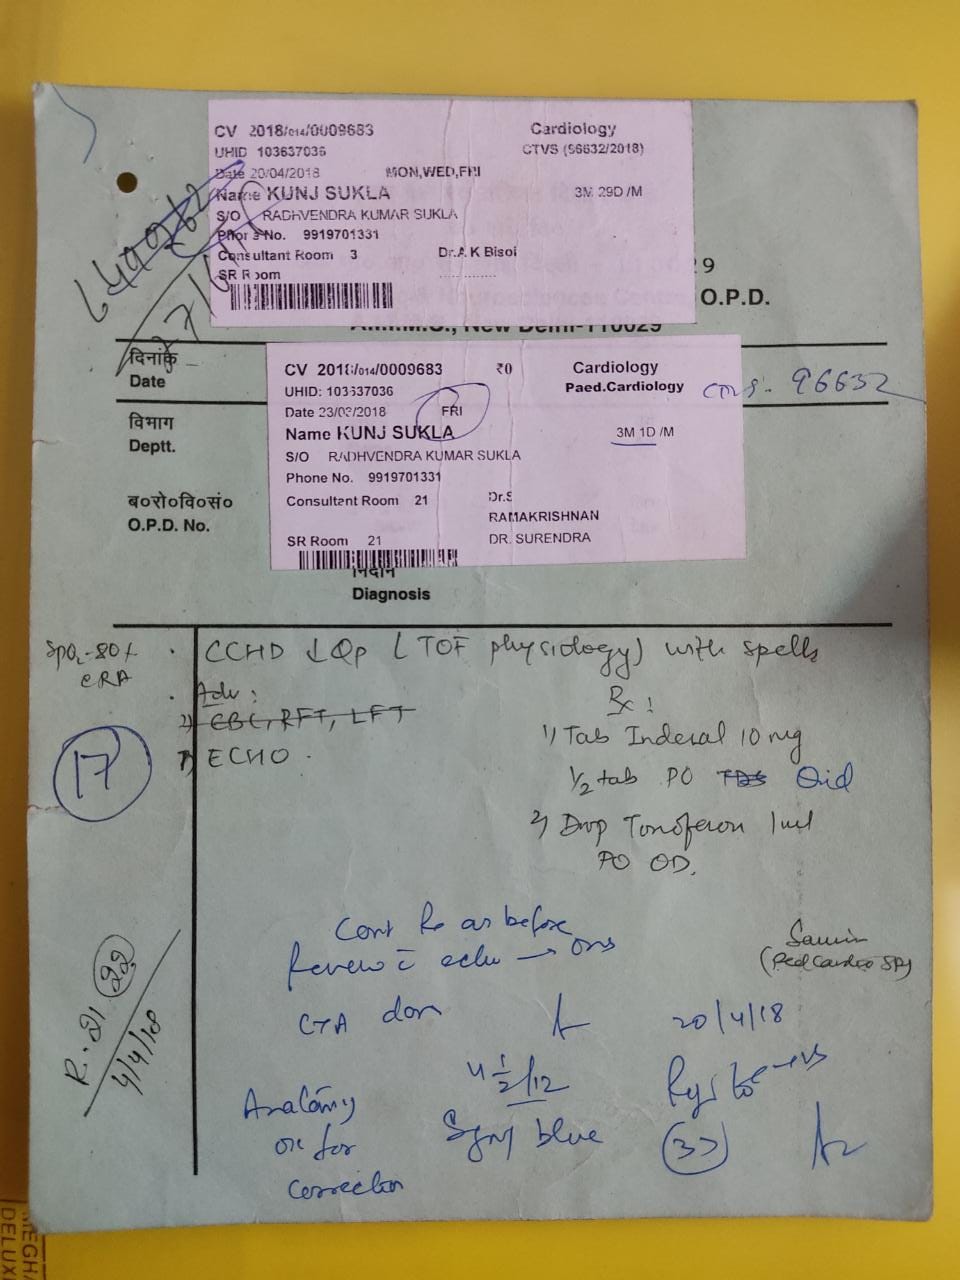 CV 2018/014/0009683 Cardiology
UHID 103637036 CTVS (96632/2018)
Date 20/04/2018 MON,WED,FRI
Name KUNJ SUKLA 3M 29D /M
S/O RADHVENDRA KUMAR SUKLA
Phone No. 9919701331
Consultant Room 3 Dr.A K Bisoi
SR Room
29
O.P.D.
A.I.I.M.S., New Delhi-110029
दिनांक
Date
CV 2018/014/0009683 ₹0 Cardiology
UHID: 103637036 Paed.Cardiology
CTVS- 96632
Date 23/03/2018 FRI
Name KUNJ SUKLA 3M 1D /M
S/O RADHVENDRA KUMAR SUKLA
Phone No. 9919701331
Consultant Room 21 Dr.S
RAMAKRISHNAN
SR Room 21 DR. SURENDRA
विभाग
Deptt.
ब०रो०वि०सं०
O.P.D. No.
निदान
Diagnosis
SpO2-80%
CCHD ↓Qp (TOF physiology) with spells
Adv:
2) CBC, RFT, LFT
1) ECHO.
17
Rx:
1) Tab Inderal 10 mg
1/2 tab PO TDS Qid
2) Drop Tonoferon 1ml
PO OD.
Cont Rx as before
Review c echo →
(Ped Cardio SR)
R.21 22
4/4/18
CTA done 20/4/18
4 1/2/12
Anatomy
ok for
correction
blue